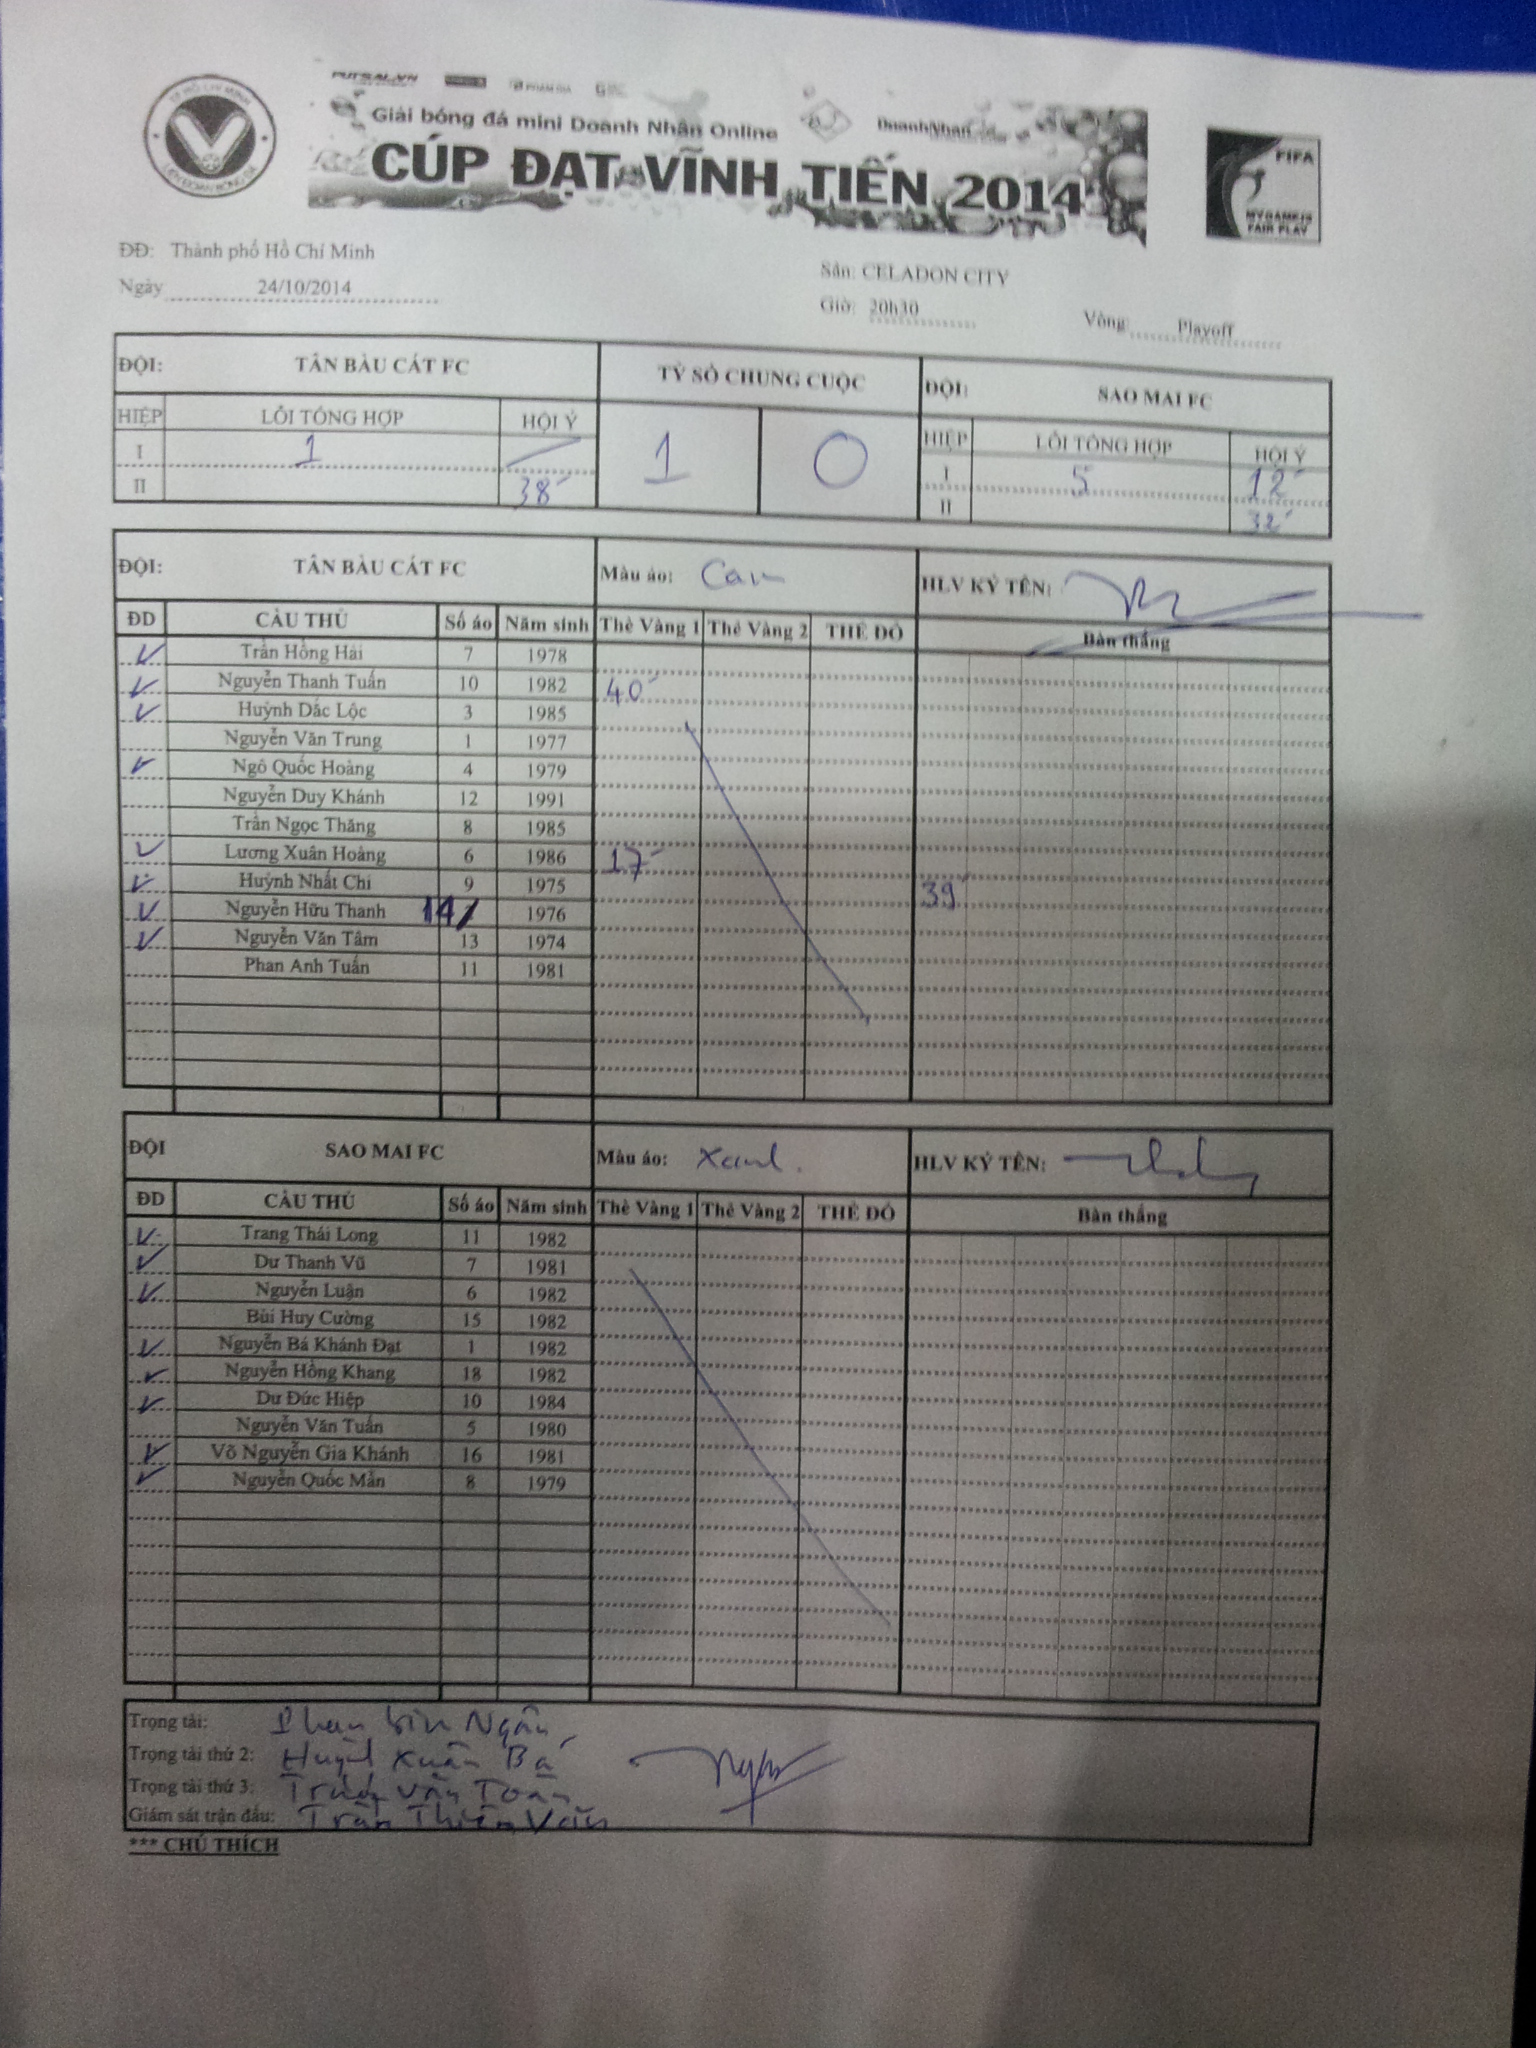 FUTSAL.VN
Giải bóng đá mini Doanh Nhân Online
CÚP ĐẠT VĨNH TIẾN 2014
FIFA
MY GAME IS
FAIR PLAY
ĐĐ: Thành phố Hồ Chí Minh
Sân: CELADON CITY
Ngày 24/10/2014
Giờ: 20h30 Vòng: Playoff
ĐỘI: TÂN BÀU CÁT FC TỶ SỐ CHUNG CUỘC ĐỘI: SAO MAI FC
HIỆP LỖI TỔNG HỢP HỘI Ý 1 0 HIỆP LỖI TỔNG HỢP HỘI Ý
I 1 I 5 12'
II 38' II 32'
ĐỘI: TÂN BÀU CÁT FC Màu áo: Cam HLV KÝ TÊN:
ĐD CẦU THỦ Số áo Năm sinh Thẻ Vàng 1 Thẻ Vàng 2 THẺ ĐỎ Bàn thắng
Trần Hồng Hải 7 1978
Nguyễn Thanh Tuấn 10 1982 40'
Huỳnh Dắc Lộc 3 1985
Nguyễn Văn Trung 1 1977
Ngô Quốc Hoàng 4 1979
Nguyễn Duy Khánh 12 1991
Trần Ngọc Thăng 8 1985
Lương Xuân Hoàng 6 1986 17'
Huỳnh Nhất Chi 9 1975 39'
Nguyễn Hữu Thanh 14 1976
Nguyễn Văn Tâm 13 1974
Phan Anh Tuấn 11 1981
ĐỘI SAO MAI FC Màu áo: Xanh. HLV KÝ TÊN:
ĐD CẦU THỦ Số áo Năm sinh Thẻ Vàng 1 Thẻ Vàng 2 THẺ ĐỎ Bàn thắng
Trang Thái Long 11 1982
Dư Thanh Vũ 7 1981
Nguyễn Luận 6 1982
Bùi Huy Cường 15 1982
Nguyễn Bá Khánh Đạt 1 1982
Nguyễn Hồng Khang 18 1982
Dư Đức Hiệp 10 1984
Nguyễn Văn Tuấn 5 1980
Võ Nguyễn Gia Khánh 16 1981
Nguyễn Quốc Mẫn 8 1979
Trọng tài: Phan Ngân
Trọng tài thứ 2: Huỳnh Xuân Bá
Trọng tài thứ 3: Văn Toàn
Giám sát trận đấu: Trần Thiện Văn
*** CHÚ THÍCH